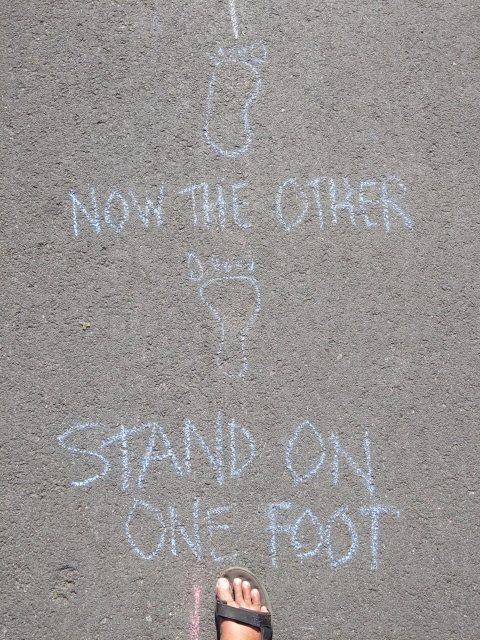 NOW THE OTHER
STAND ON
ONE FOOT